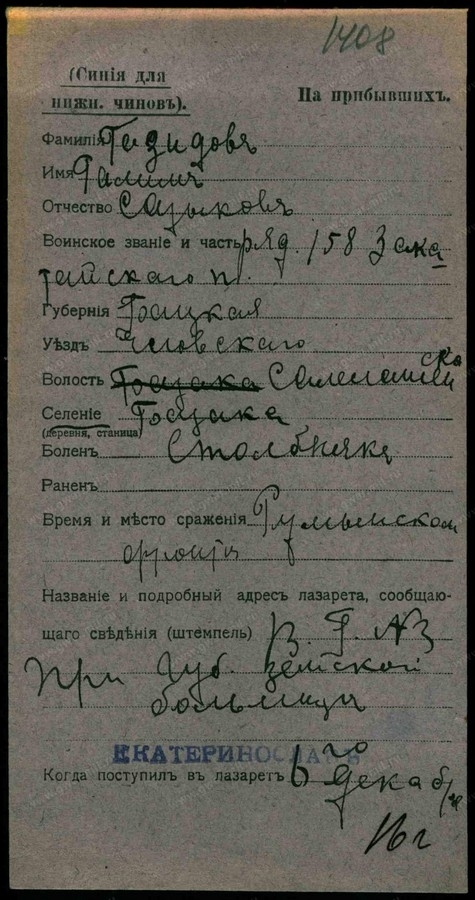 1408
(Синія для
нижн. чиновъ).
На прибывшихъ.
Фамилія Газидовъ
Имя Галимъ
Отчество Садыковъ
Воинское званіе и часть ряд. 158 Зака
тайскаго п.
Губернія
Уѣздъ
Волость
Селеніе
(деревня, станица)
Боленъ Столбнякъ
Раненъ
Время и мѣсто сраженія Румынском
фронтѣ
Названіе и подробный адресъ лазарета, сообщаю-
щаго свѣдѣнія (штемпель) В. Г. №3
При Губ. земской
больницѣ
ЕКАТЕРИНОСЛАВЪ
Когда поступилъ въ лазаретъ 6 го
декаб
16 г